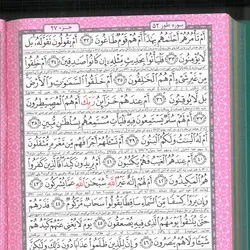 سوره طور ۵۲ جزء ۲۷
أَمْ تَأْمُرُهُمْ أَحْلَٰمُهُم بِهَٰذَآ أَمْ هُمْ قَوْمٌ طَاغُونَ ﴿٣٢﴾ أَمْ يَقُولُونَ تَقَوَّلَهُۥ بَل
لَّا يُؤْمِنُونَ ﴿٣٣﴾ فَلْيَأْتُوا۟ بِحَدِيثٍ مِّثْلِهِۦٓ إِن كَانُوا۟ صَٰدِقِينَ ﴿٣٤﴾ أَمْ خُلِقُوا۟
مِنْ غَيْرِ شَىْءٍ أَمْ هُمُ ٱلْخَٰلِقُونَ ﴿٣٥﴾ أَمْ خَلَقُوا۟ ٱلسَّمَٰوَٰتِ وَٱلْأَرْضَ
بَل لَّا يُوقِنُونَ ﴿٣٦﴾ أَمْ عِندَهُمْ خَزَآئِنُ رَبِّكَ أَمْ هُمُ ٱلْمُصَۜيْطِرُونَ
﴿٣٧﴾ أَمْ لَهُمْ سُلَّمٌ يَسْتَمِعُونَ فِيهِ فَلْيَأْتِ مُسْتَمِعُهُم بِسُلْطَٰنٍ مُّبِينٍ ﴿٣٨﴾
أَمْ لَهُ ٱلْبَنَٰتُ وَلَكُمُ ٱلْبَنُونَ ﴿٣٩﴾ أَمْ تَسْـَٔلُهُمْ أَجْرًا فَهُم مِّن مَّغْرَمٍ مُّثْقَلُونَ
﴿٤٠﴾ أَمْ عِندَهُمُ ٱلْغَيْبُ فَهُمْ يَكْتُبُونَ ﴿٤١﴾ أَمْ يُرِيدُونَ كَيْدًا فَٱلَّذِينَ كَفَرُوا۟
هُمُ ٱلْمَكِيدُونَ ﴿٤٢﴾ أَمْ لَهُمْ إِلَٰهٌ غَيْرُ ٱللَّهِ سُبْحَٰنَ ٱللَّهِ عَمَّا يُشْرِكُونَ ﴿٤٣﴾
وَإِن يَرَوْا۟ كِسْفًا مِّنَ ٱلسَّمَآءِ سَاقِطًا يَقُولُوا۟ سَحَابٌ مَّرْكُومٌ ﴿٤٤﴾ فَذَرْهُمْ
حَتَّىٰ يُلَٰقُوا۟ يَوْمَهُمُ ٱلَّذِى فِيهِ يُصْعَقُونَ ﴿٤٥﴾ يَوْمَ لَا يُغْنِى عَنْهُمْ كَيْدُهُمْ
شَيْـًٔا وَلَا هُمْ يُنصَرُونَ ﴿٤٦﴾ وَإِنَّ لِلَّذِينَ ظَلَمُوا۟ عَذَابًا دُونَ ذَٰلِكَ